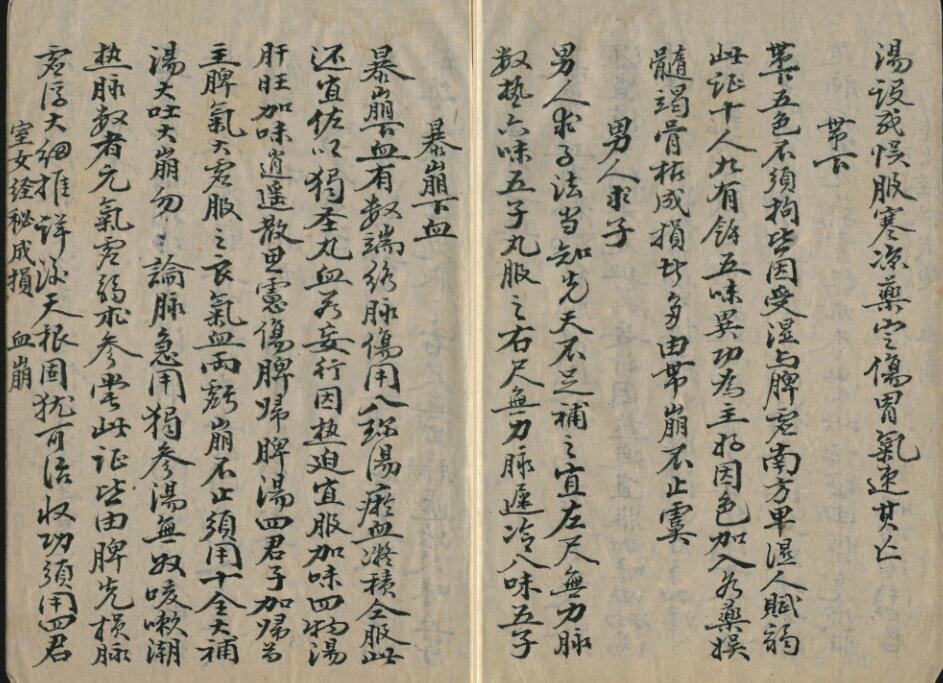 湯設或悮服寒凉藥必傷胃氣速其亡
帶下
帶下五色不須拘皆因受湿与脾虚南方卑湿人賦弱
此证十人九有餘五味異功為主好因色加入各藥娛
髓竭骨枯成損皆多由帶崩不止虞
男人求子
男人求子法当知先天不足補之宜左尺無力脉
数热六味五子丸服之右尺無力脉遲冷八味五子
暴崩下血
暴崩下血有数端絡脉傷用八珍湯瘀血凝積仝服此
还宜佐以獨圣丸血若妄行因热迫宜服加味四物湯
肝旺加味逍遥散思慮傷脾歸脾湯四君子加歸
主脾氣大虚服之良氣血両虧崩不止須用十全大補
湯大吐大崩勿論脉急用獨參湯無奴咳嗽潮
热脉数者元氣虚弱求參嘗此证皆由脾先損脉
虚浮大細推詳後天根固犹可治收功須用四君
室女经秘成損 血崩